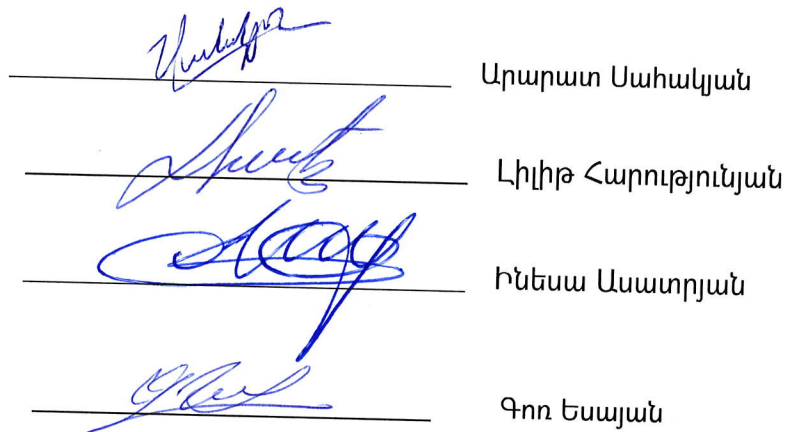 Արարատ Սահակյան
Լիլիթ Հարությունյան
Ինեսա Ասատրյան
Գոռ Եսայան